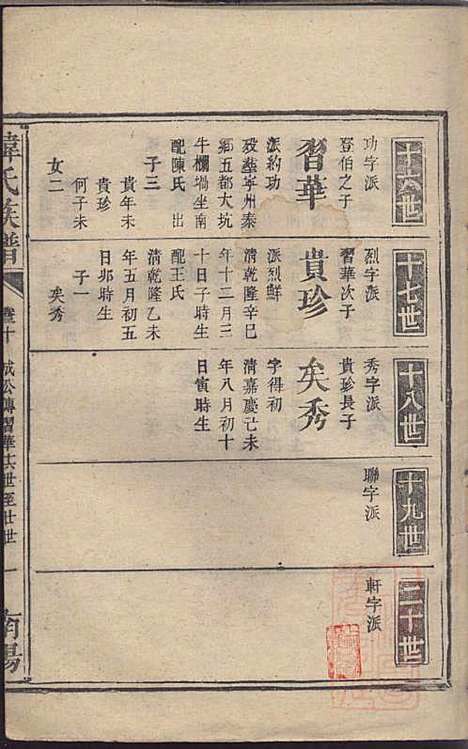 十六世
功字派
登伯之子
習華
派約功
歿塟寧州泰
鄉五都大坑
牛欄塲坐南
配陳氏 出
子三
貴年未
貴珍
何子未
女二
十七世
烈字派
習華次子
貴珍
派烈鮮
清乾隆辛巳
年十二月三
十日子時生
配王氏
清乾隆乙未
年五月初五
日邜時生
子一
矣秀
十八世
秀字派
貴珍長子
矣秀
字得初
清嘉慶己未
年八月初十
日寅時生
十九世
聯字派
二十世
軒字派
韋氏族譜
卷十
習華十六世至廿世
一
南陽